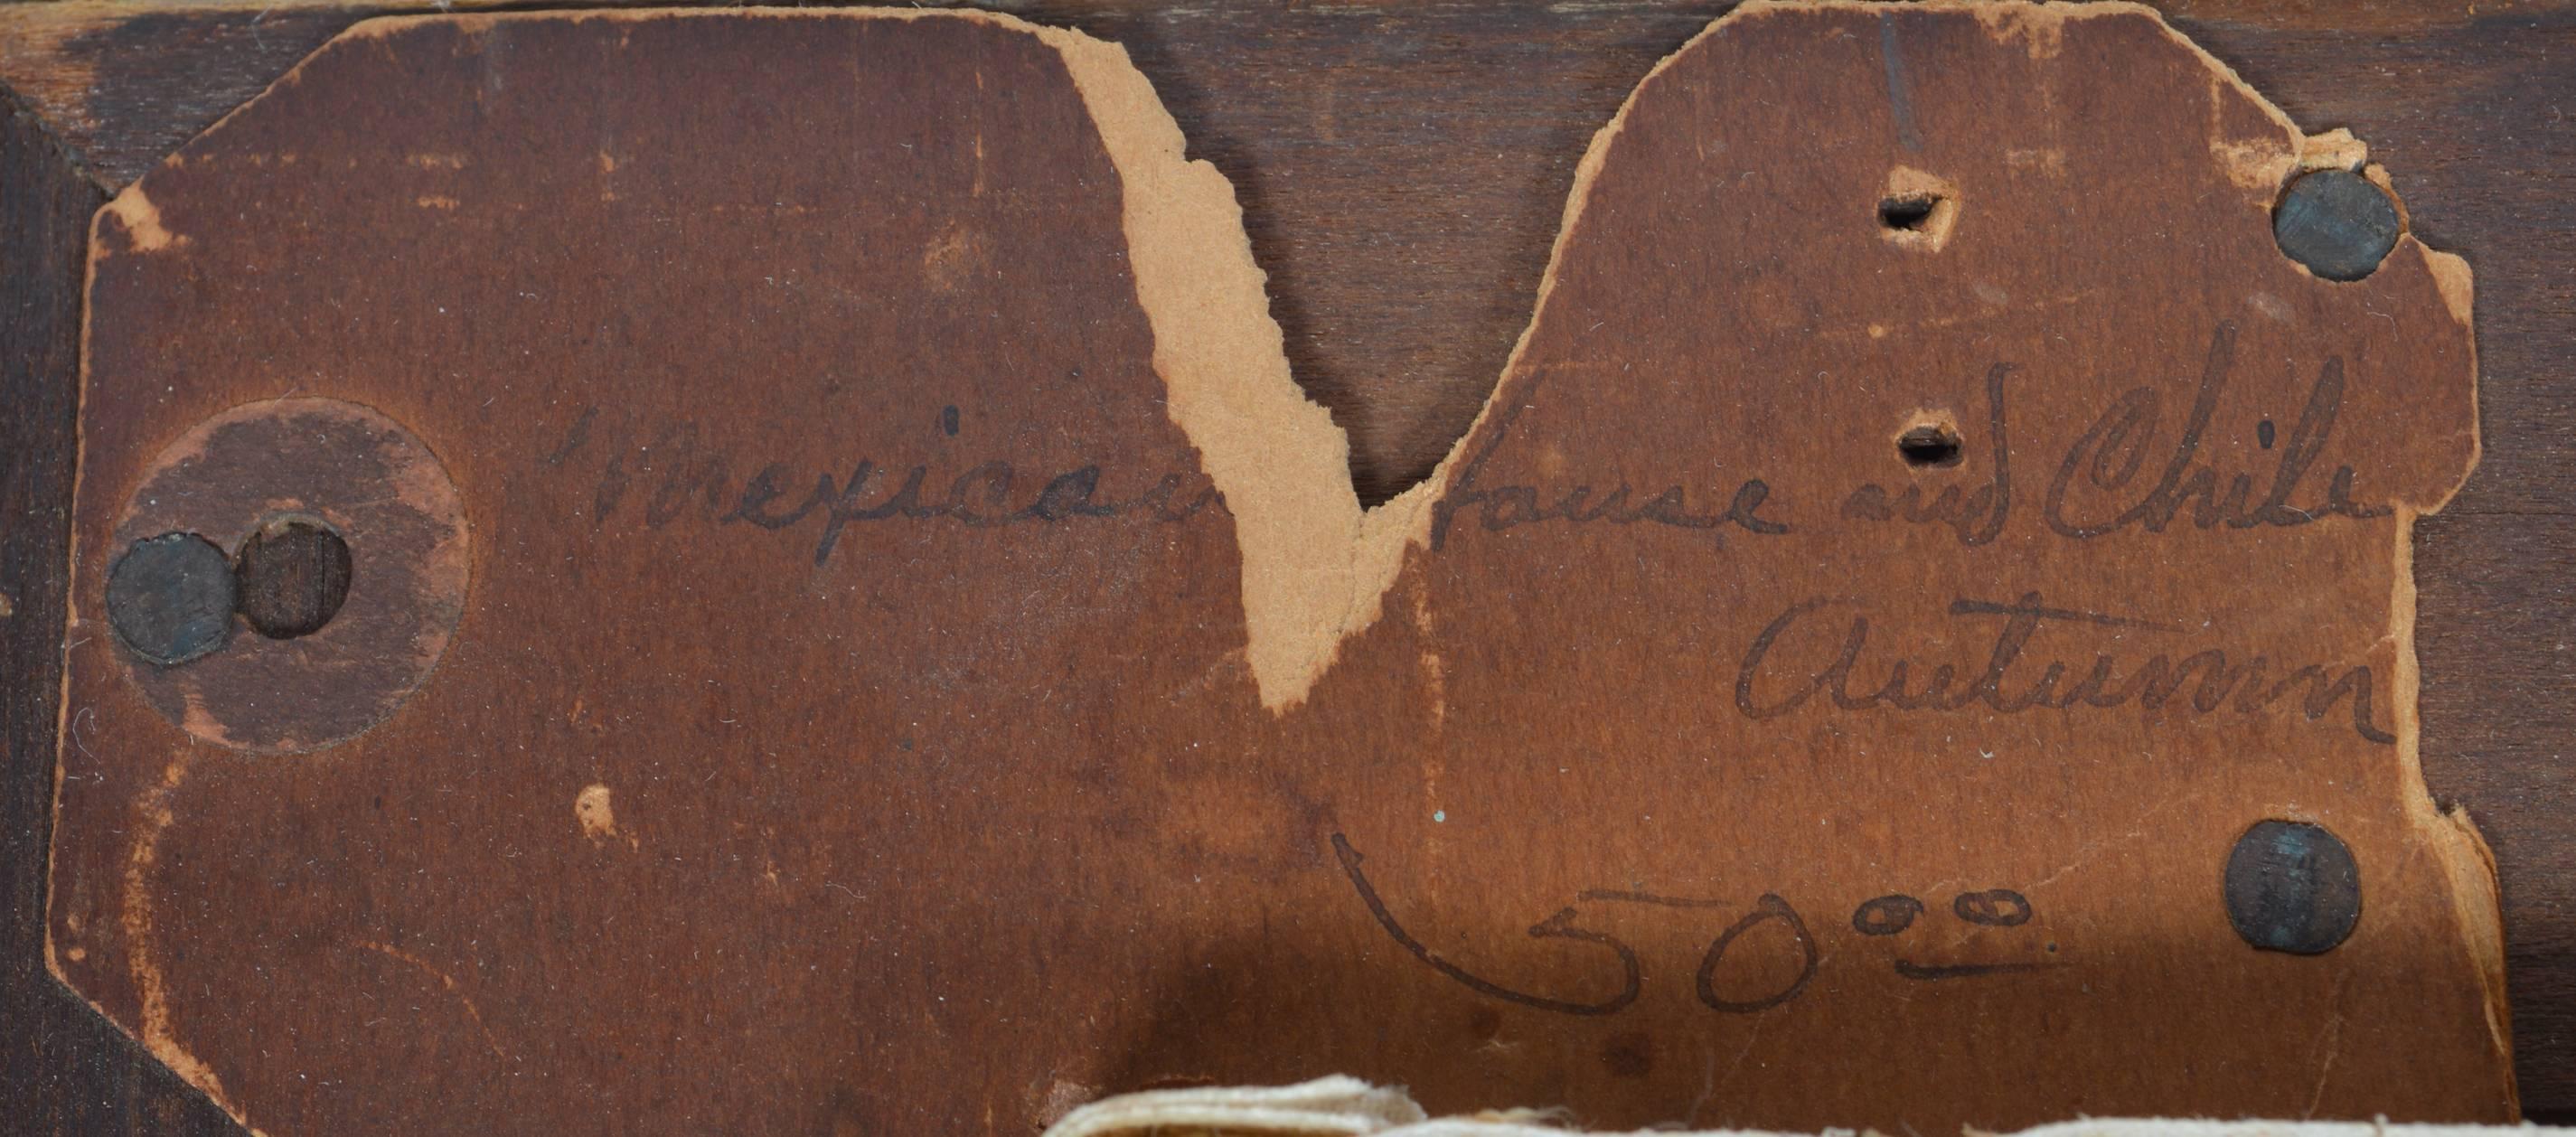 "Mexican house and Chile
Autumn
50⁰⁰